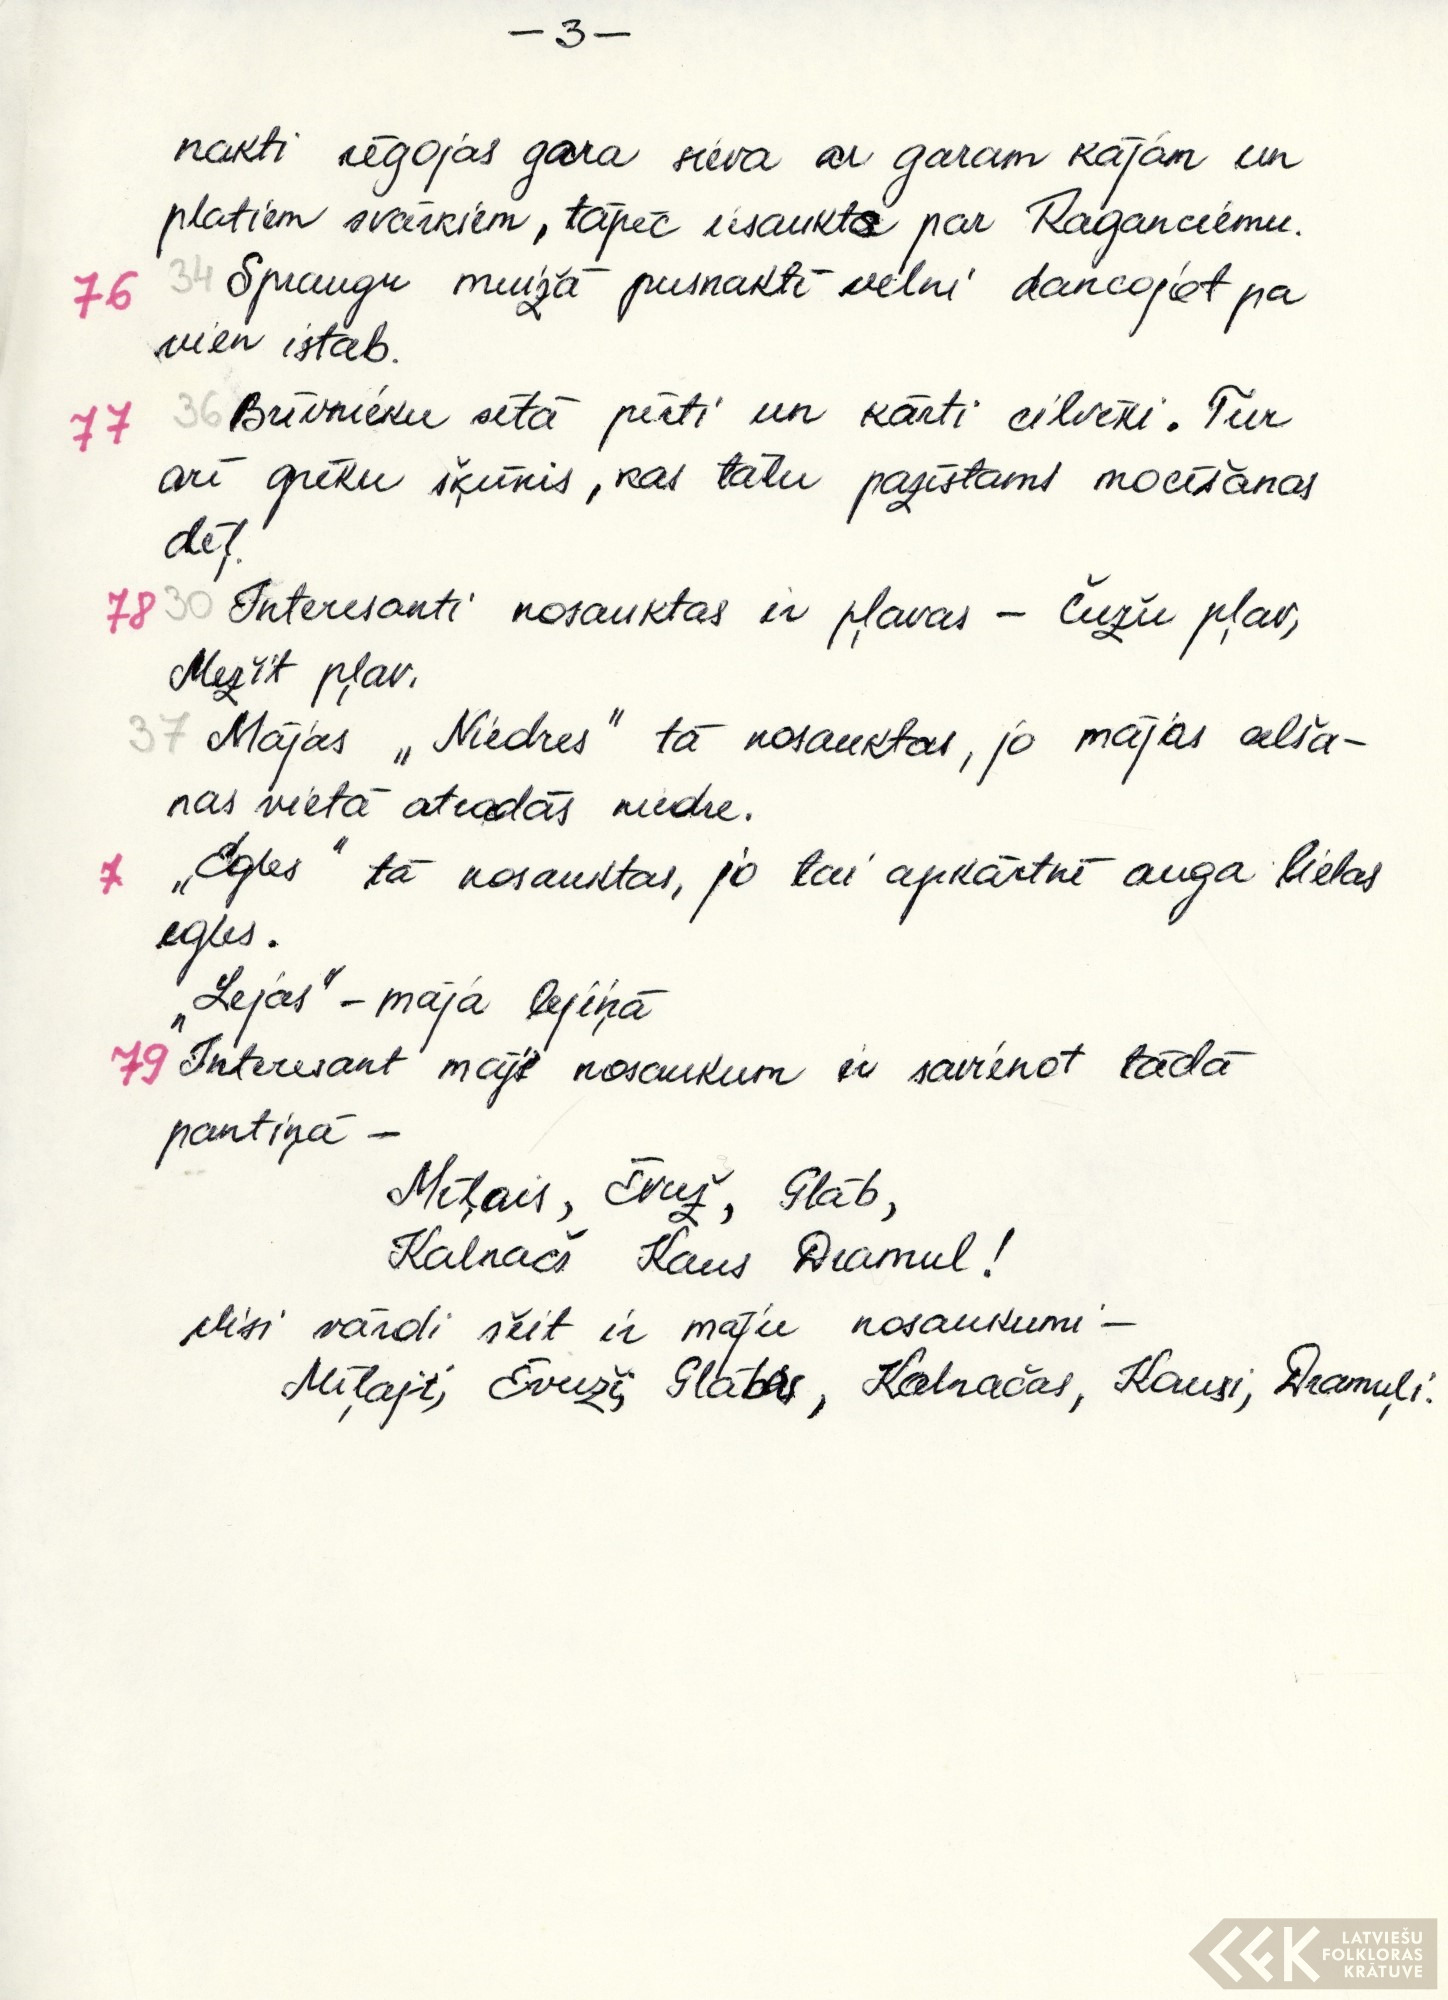 — 3 —
nakti rēgojas gara sieva ar garam kājām un
platiem svārkiem, tāpēc iesaukts par Raganciemu.
76 34 Spraugu muižā pusnaktī velni dancojot pa
vien istab.
77 36 Brīvnieku sētā pērti un kārti cilvēki. Tur
arī grēku šķūnis, kas tālu pazīstams mocīšanas
dēļ.
78 30 Interesanti nosauktas ir pļavas – Čužu pļav,
Mežīt pļav.
37 Mājas „Niedres" tā nosauktas, jo mājas celša-
nas vietā atradās niedre.
7 „Egles" tā nosauktas, jo tai apkārtnē auga lielas
egles.
„Lejas" – māja lejiņā
79 Interesant māj nosaukum ir savienot tādā
pantiņā –
Mīļais, Ēvuž, Glāb,
Kalnačs Kaus Dramul!
Visi vārdi šeit ir māju nosaukumi –
Mīļaji, Ēvuži, Glābas, Kalnačas, Kausi, Dramuļi.
LATVIEŠU
FOLKLORAS
KRĀTUVE